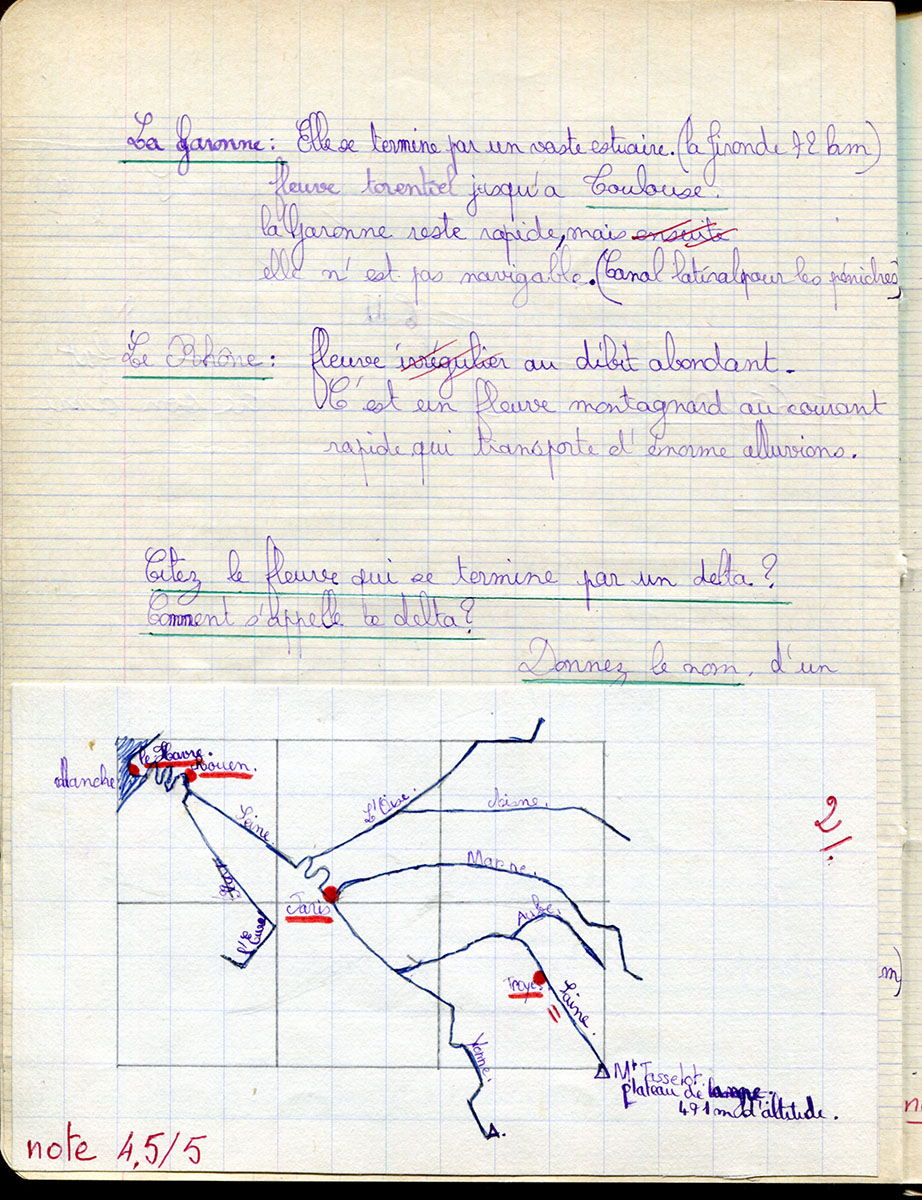 La Garonne: Elle se termine par un vaste estuaire. (la Gironde 72 km)
fleuve torentiel jusqu'a Toulouse.
la Garonne reste rapide, mais ensuite
elle n'est pas navigable. (Canal latéral pour les péniches)
Le Rhône: fleuve irrégulier au débit abondant.
C'est un fleuve montagnard au courant
rapide qui transporte d'énorme alluvions.
Citez le fleuve qui se termine par un delta?
Comment s'appelle ce delta?
Donnez le nom, d'un
le Havre.
Manche
Rouen.
Seine
L'Oise.
Aisne.
Marne.
l'Eure
Paris
Aube.
Troyes
Seine.
Yonne.
Mt Tasselot.
plateau de langre.
491 m d'altitude.
2/.
m)
n
note 4,5/5